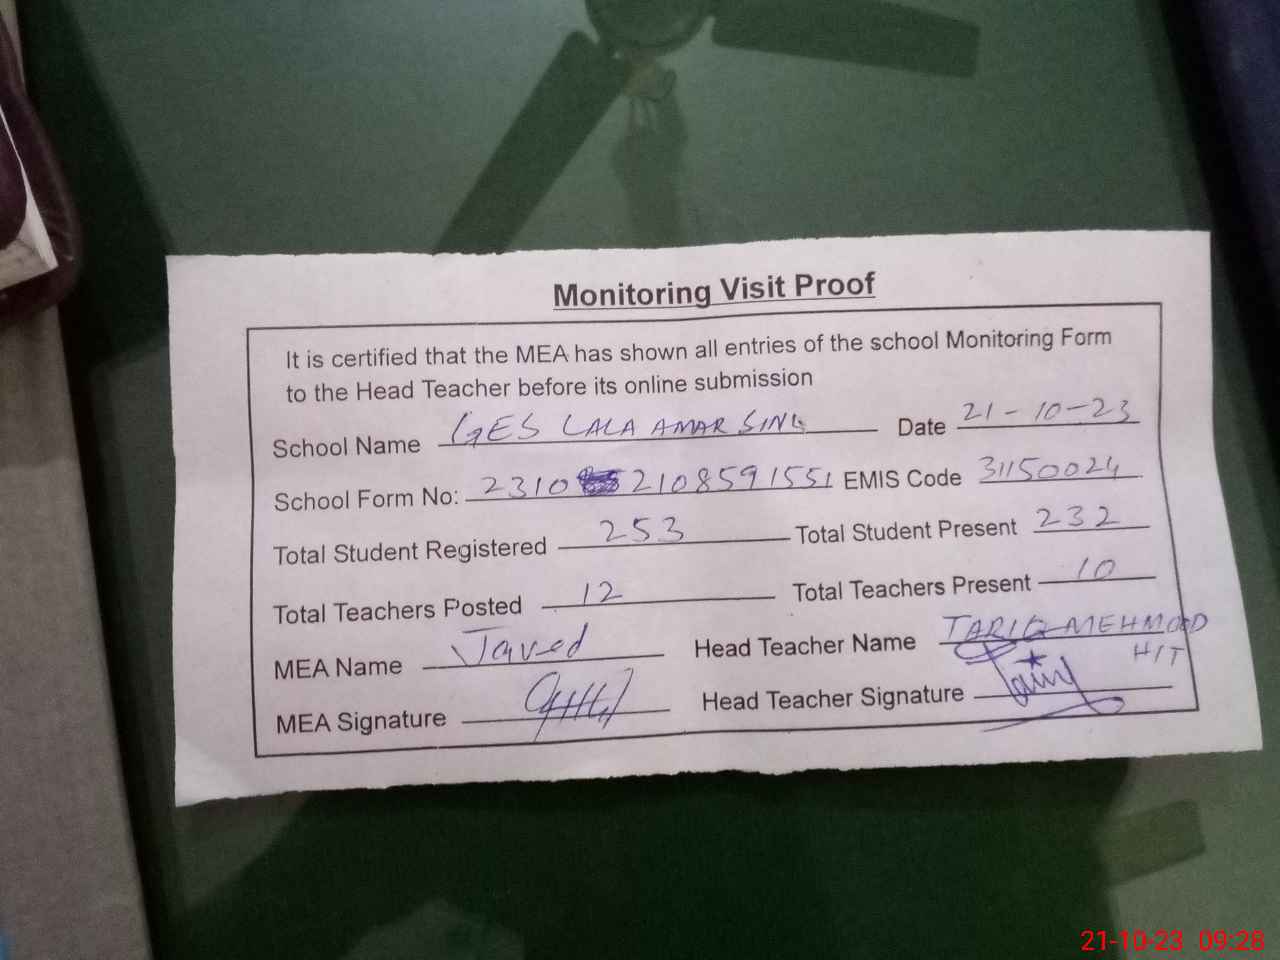 Monitoring Visit Proof
It is certified that the MEA has shown all entries of the school Monitoring Form
to the Head Teacher before its online submission
School Name GES LALA AMAR SING Date 21-10-23
School Form No: 2310 2108591551 EMIS Code 31150024
Total Student Registered 253 Total Student Present 232
Total Teachers Posted 12 Total Teachers Present 10
MEA Name Javed Head Teacher Name TARIQ MEHMOOD
H/T
MEA Signature Head Teacher Signature
21-10-23 09:28